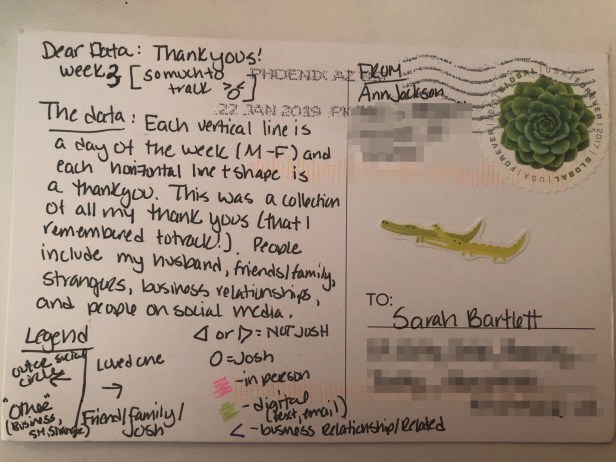 Dear Data: Thank yous!
week 3 [so much to
track]
PHOENIX AZ
22 JAN 2019
The data: Each vertical line is
a day of the week (M-F) and
each horizontal line + shape is
a thank you. This was a collection
of all my thank yous (that I
remembered to track!). People
include my husband, friends/family,
strangers, business relationships,
and people on social media.
Legend
outer social
circle
"Other"
(Business,
SM, Strange)
Loved one
Friend/family/
Josh
◁ or ▷ = NOT JOSH
O = Josh
- in person
- digital
(text, email)
< - business relationship/Related
FROM
Ann Jackson
GLOBAL | USA | FOREVER 2017 | GLOBAL | USA | FOREVER
TO:
Sarah Bartlett